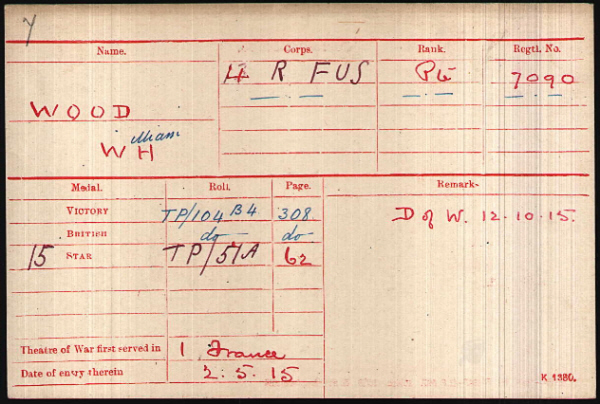 Y
Name. Corps. Rank. Regtl. No.
R FUS Pte 7090
WOOD
W illiam H
Medal. Roll. Page. Remarks
VICTORY TP/104 B4 308. D of W. 12.10.15.
BRITISH do do
15 STAR TP/51A 62
Theatre of War first served in 1 France
Date of entry therein 2.5.15
K 1380.